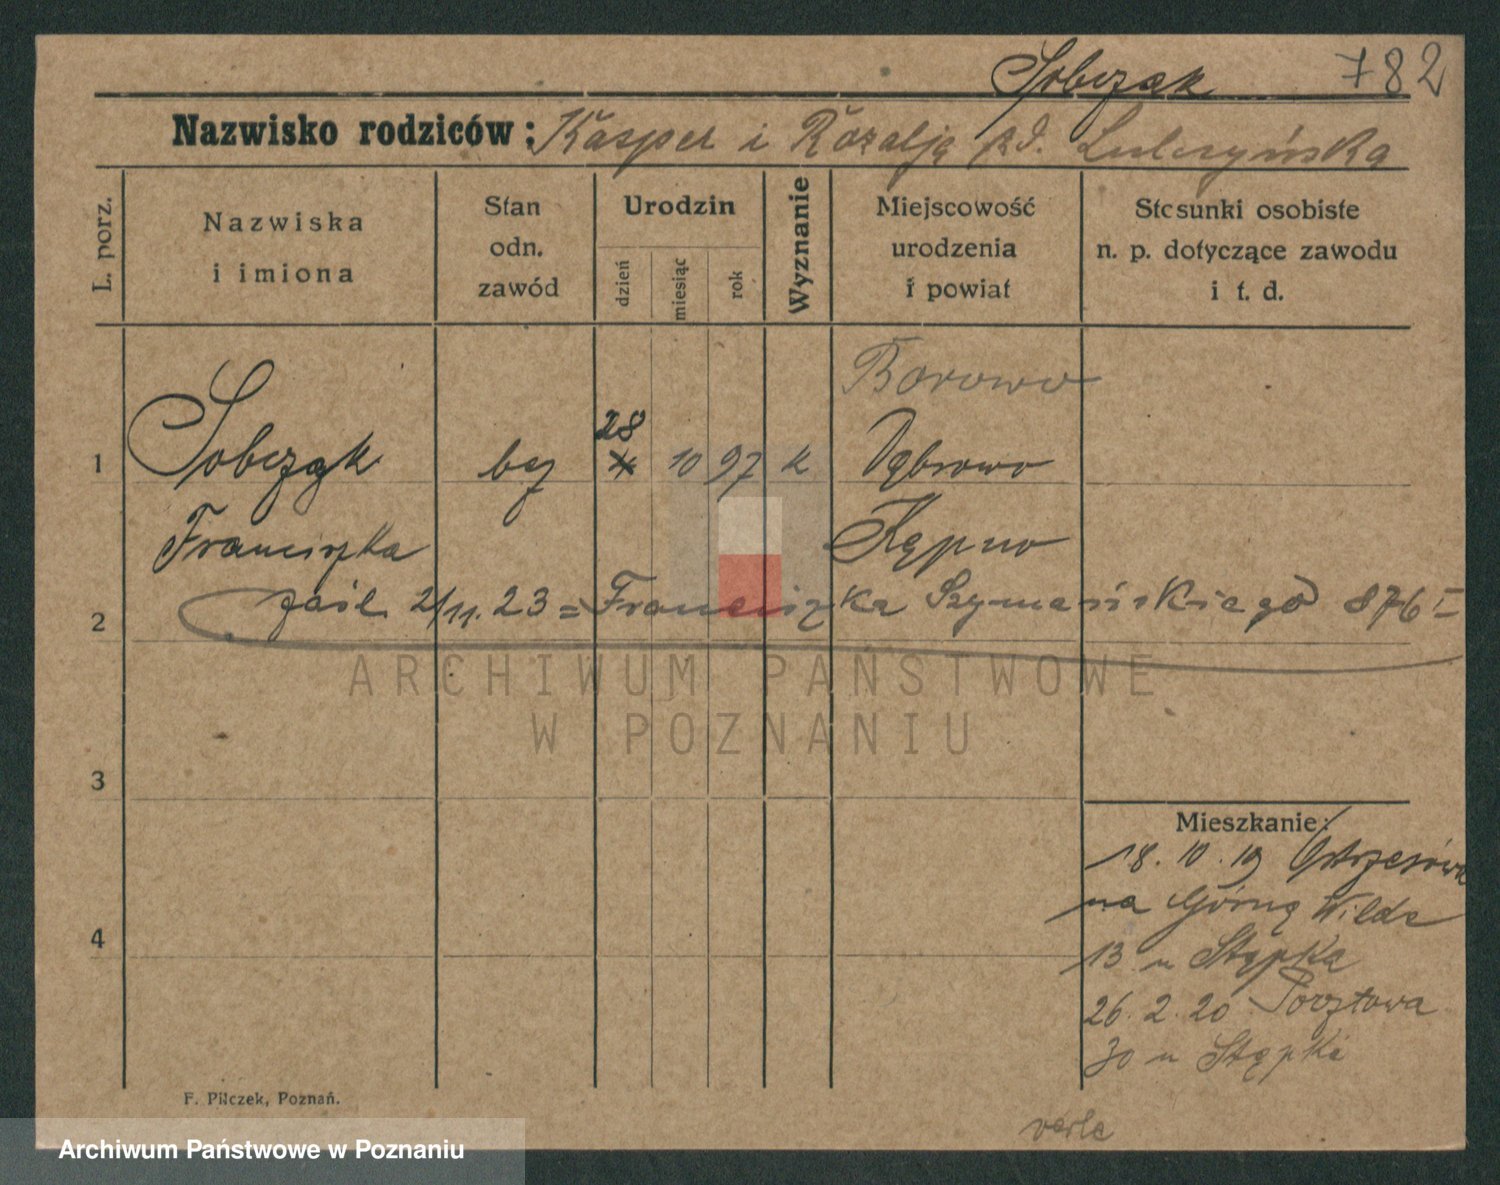 Sobczak 782
Nazwisko rodziców: Kasper i Rozalja zd.
L. porz.
Nazwiska
i imiona
Stan
odn.
zawód
Urodzin
dzień
miesiąc
rok
Wyznanie
Miejscowość
urodzenia
i powiat
Stosunki osobiste
n. p. dotyczące zawodu
i t. d.
Borowo
28
1 Sobczak 10 97 k Dąbrowo
Franciszka Kępno
2 zaśl. 2/11. 23 = Franciszka Szymańskiego 876 I
ARCHIWUM PAŃSTWOWE
W POZNANIU
3
Mieszkanie:
18. 10. 19
na Górną Wilda
4
13 u Stępka
26. 2. 20 Pocztowa
30 u Stępka
F. Pilczek, Poznań.
verte
Archiwum Państwowe w Poznaniu